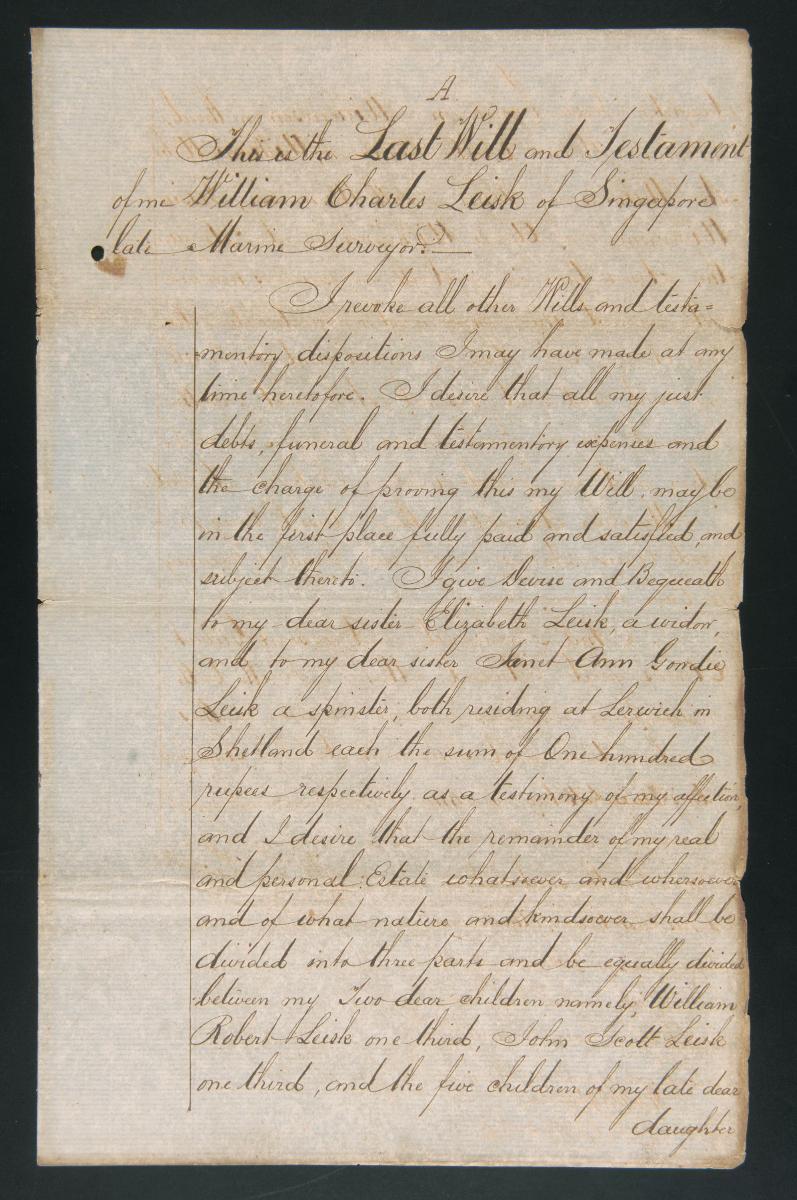 A
This is the Last Will and Testament
of me William Charles Leisk of Singapore
late Marine Surveyor.
I revoke all other Wills and testa=
mentory dispositions I may have made at any
time heretofore. I desire that all my just
debts, funeral and testamentory expenses and
the charge of proving this my Will, may be
in the first place fully paid and satisfied, and
subject thereto. I give Devise and Bequeath
to my dear sister Elizabeth Leisk, a widow,
and to my dear sister Janet Ann Goudie
Leisk a spinster, both residing at Lerwich in
Shetland each the sum of One hundred
rupees respectively as a testimony of my affection,
and I desire that the remainder of my real
and personal Estate whatsoever and whersoever
and of what nature and kindsoever shall be
divided into three parts and be equally divided
between my Two dear children namely, William
Robert Leisk one third, John Scott Leisk
one third, and the five children of my late dear
daughter